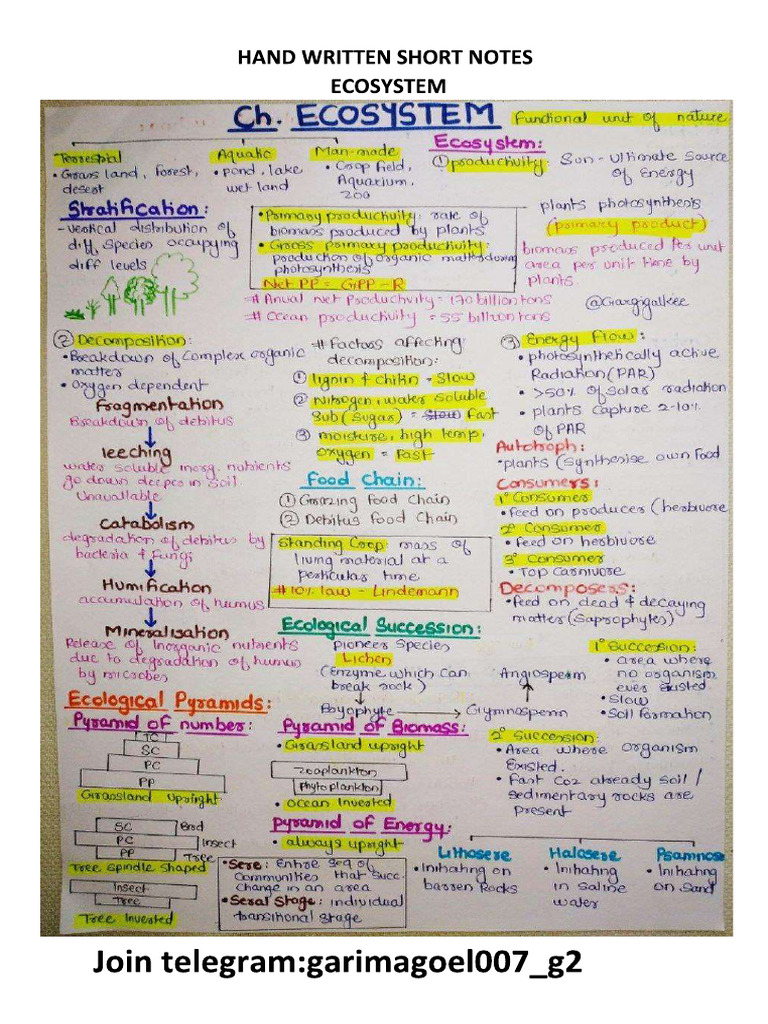 HAND WRITTEN SHORT NOTES
ECOSYSTEM
Ch. ECOSYSTEM Functional unit of nature
Terrestrial
• Grass land, Forest,
desert
Aquatic
• pond, lake
wet land
Man-made
• Crop field,
Aquarium,
zoo
Ecosystem:
① productivity: Sun - Ultimate Source
of Energy
plants photosynthesis
(primary product)
biomass produced per unit
area per unit time by
plants
Stratification:
- vertical distribution of
diff species occupying
diff levels
• Primary productivity: rate of
biomass produced by plants
• Gross primary productivity:
production of organic matter during
photosynthesis
Net PP = GPP - R
# Anual net Productivity = 170 billion tons
# Ocean productivity = 55 billion tons
@Gargigalkee
② Decomposition:
• Breakdown of Complex organic
matter
• Oxygen dependent
Fragmentation
Breakdown of debitus
leeching
water soluble inorg. nutrients
go down deeper in Soil
Unavailable
Catabolism
degradation of debitus by
bacteria & Fungi
Humification
accumulation of humus
Mineralisation
Release of Inorganic nutrients
due to degradation of humus
by microbes
# Factors affecting
decomposition:
① lignin & chitin = Slow
② Nitrogen, water soluble
Sub (Sugar) = Slow Fast
③ moisture, high temp,
oxygen = Fast
Food Chain:
① Grazing Food Chain
② Debitus Food Chain
Standing Crop: mass of
living material at a
perticular time
# 10% law - Lindemann
③ Energy flow:
• photosynthetically active
Radiation (PAR)
• >50% of Solar radiation
• plants capture 2-10%
of PAR
Autotroph:
• plants (Synthesise own Food
Consumers:
1° Consumer
• feed on producer (herbivore
2° Consumer
• feed on herbivore
3° Consumer
• Top Carnivore
Decomposers:
• feed on dead & decaying
matter (Saprophytes)
Ecological Succession:
pioneer Species
Lichen
(Enzyme which can
break rock)
Bryophyte
Gymnosperm
Angiosperm
1° Succession:
• area where
no organism
ever existed
• Slow
• Soil formation
2° Succession:
• Area where organism
Existed.
• Fast Coz already soil /
sedimentary rocks are
present
Ecological Pyramids:
Pyramid of number:
TC
SC
PC
PP
Grassland Upright
SC Bird
PC Insect
PP Tree
Tree Spindle Shaped
Insect
Tree
Tree Inverted
Pyramid of Biomass:
• Grassland upright
zooplankton
Phytoplankton
• ocean Inverted
Pyramid of Energy:
• always upright
• Sere: Entire Seq of
Communities that Succ.
Change in an area
• Seral Stage: individual
transitional stage
Lithosere
• Initiating on
barren Rocks
Halosere
• Initiating
in saline
water
Psamnose
• Initiating
on sand
Join telegram:garimagoel007_g2